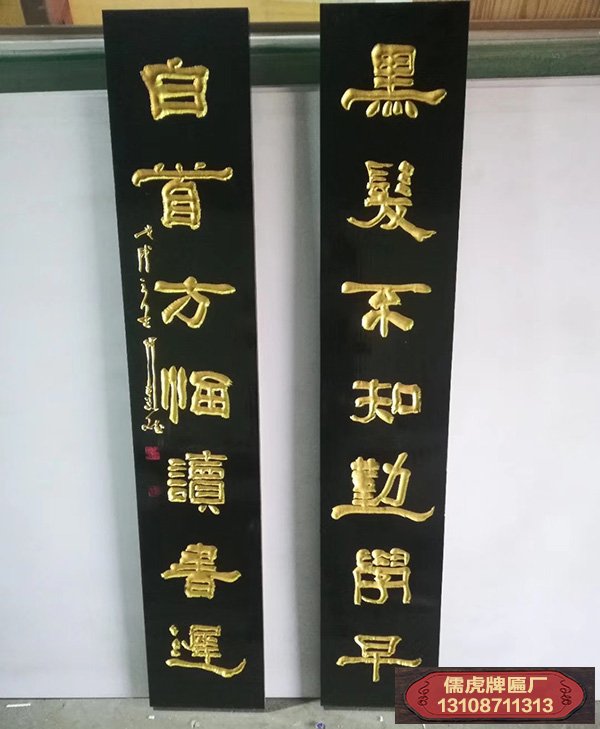 黑髮不知勤學早
白首方悔讀書遲
儒虎牌匾厂
13108711313